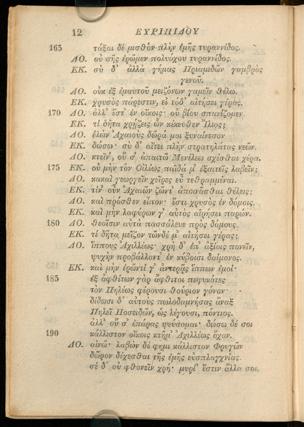 12 ΕΥΡΙΠΙΔΟΥ
165 τάξαι δὲ μισθὸν πλὴν ἐμῆς τυραννίδος.
ΔΟ. οὐ σῆς ἐρῶμεν πολιόχου τυραννίδος.
ΕΚ. σὺ δ' ἀλλὰ γήμας Πριαμιδῶν γαμβρὸς
γενοῦ.
ΔΟ. οὐκ ἐξ ἐμαυτοῦ μειζόνων γαμεῖν θέλω.
ΕΚ. χρυσὸς πάρεστιν, εἰ τόδ' αἰτήσει γέρας.
170 ΔΟ. ἀλλ' ἔστ' ἐν οἴκοις· οὐ βίου σπανίζομεν.
ΕΚ. τί δῆτα χρῄζεις ὧν κέκευθεν Ἴλιος;
ΔΟ. ἑλὼν Ἀχαιοὺς δῶρά μοι ξυναίνεσον.
ΕΚ. δώσω· σὺ δ' αἴτει πλὴν στρατηλάτας νεῶν.
ΔΟ. κτεῖν', οὔ σ' ἀπαιτῶ Μενέλεω σχέσθαι χέρα.
175 ΕΚ. οὐ μὴν τὸν Οἰλέως παῖδά μ' ἐξαιτεῖς λαβεῖν;
ΔΟ. κακαὶ γεωργεῖν χεῖρες εὖ τεθραμμέναι.
ΕΚ. τίν' οὖν Ἀχαιῶν ζῶντ' ἀποινᾶσθαι θέλεις;
ΔΟ. καὶ πρόσθεν εἶπον· ἔστι χρυσὸς ἐν δόμοις.
ΕΚ. καὶ μὴν λαφύρων γ' αὐτὸς αἱρήσει παρών.
180 ΔΟ. θεοῖσιν αὐτὰ πασσάλευε πρὸς δόμοις.
ΕΚ. τί δῆτα μεῖζον τῶνδέ μ' αἰτήσει γέρας;
ΔΟ. ἵππους Ἀχιλλέως· χρὴ δ' ἐπ' ἀξίοις πονεῖν,
ψυχὴν προβάλλοντ' ἐν κύβοισι δαίμονος.
ΕΚ. καὶ μὴν ἐρῶντί γ' ἀντερᾷς ἵππων ἐμοί·
185 ἐξ ἀφθίτων γὰρ ἄφθιτοι πεφυκότες
τὸν Πηλέως φέρουσι θούριον γόνον·
δίδωσι δ' αὐτοὺς πωλοδαμνήσας ἄναξ
Πηλεῖ Ποσειδῶν, ὡς λέγουσι, πόντιος.
ἀλλ' οὔ σ' ἐπάρας ψεύσομαι· δώσω δέ σοι
190 κάλλιστον οἴκοις κτῆμ' Ἀχιλλέως ὄχον.
ΔΟ. αἰνῶ· λαβὼν δέ φημι κάλλιστον Φρυγῶν
δῶρον δέχεσθαι τῆς ἐμῆς εὐσπλαγχνίας.
σὲ δ' οὐ φθονεῖν χρή· μυρί' ἔστιν ἄλλα σοι,